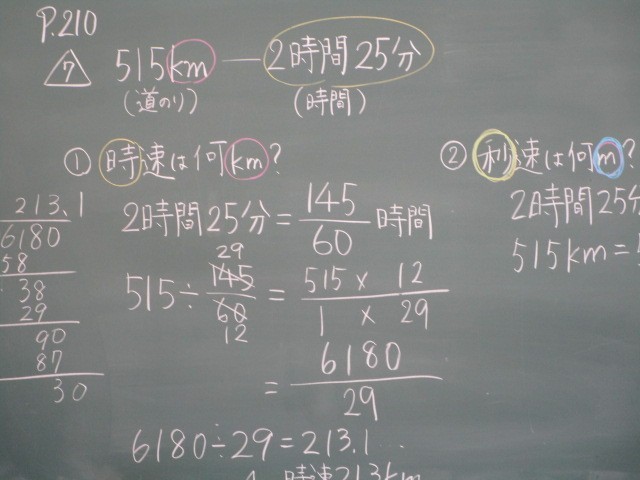 P.210
7 515km — 2時間25分
(道のり) (時間)
① 時速は何km?
2時間25分 = 145/60 時間
515 ÷ 145/60 = 515 × 12 / 1 × 29
29
12
= 6180/29
6180÷29=213.1…
時速213km
213.1
6180
58
38
29
90
87
30
② 秒速は何m?
2時間25分
515km=